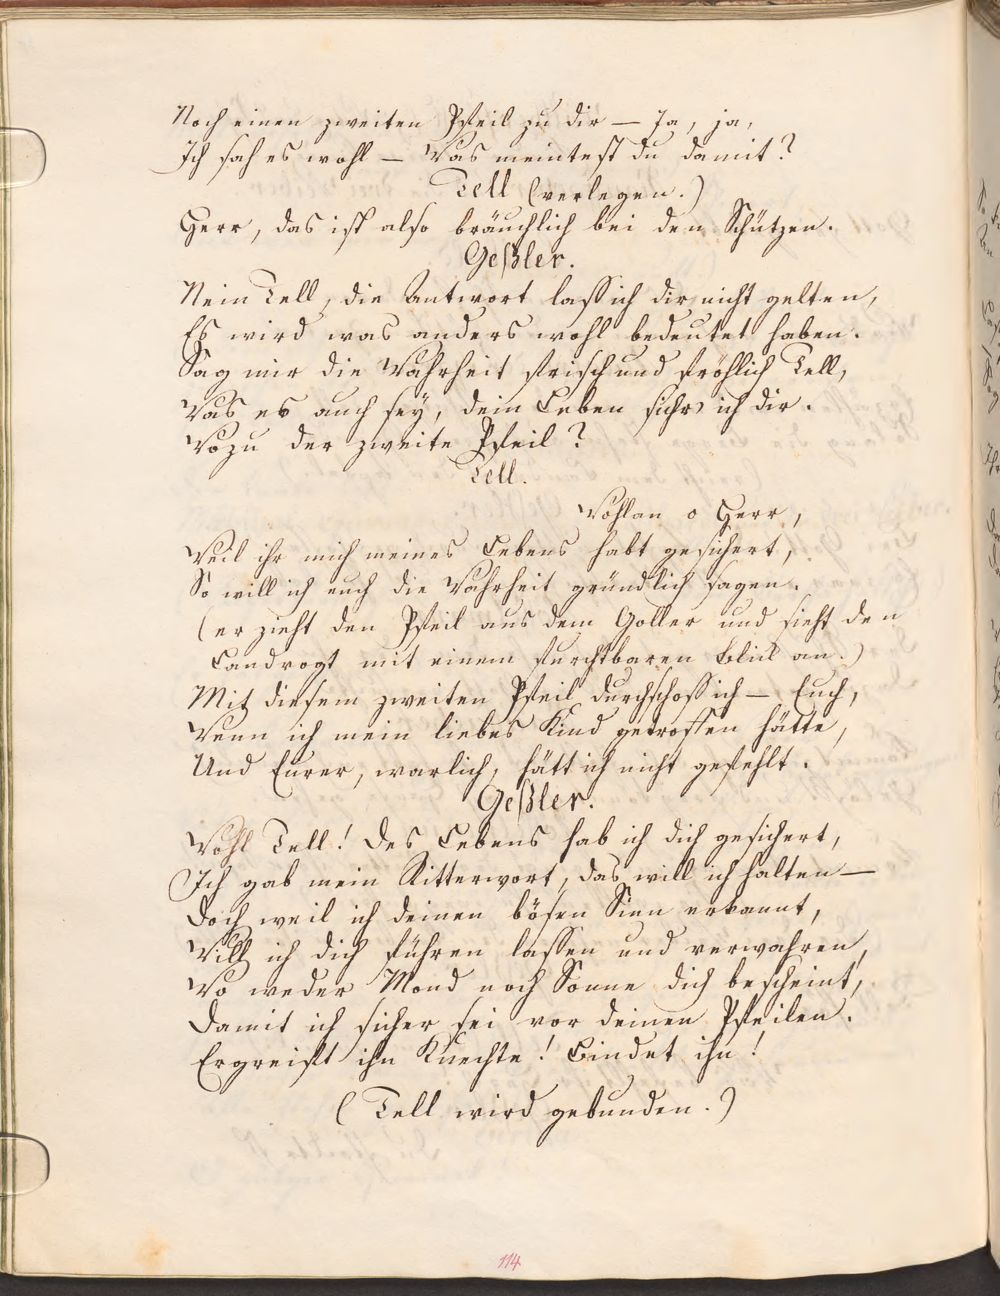 Noch einen zweiten Pfeil zu dir — Ja, ja,
Ich sah es wohl — Was meintest du damit?
Tell (verlegen.)
Herr, das ist also bräuchlich bei den Schützen.
Geßler.
Nein Tell, die Antwort lass ich dir nicht gelten,
Es wird was anders wohl bedeutet haben.
Sag mir die Wahrheit frisch und fröhlich Tell,
Was es auch sey, dein Leben sichr' ich dir.
Wozu der zweite Pfeil?
Tell.
Wohlan o Herr,
Weil ihr mich meines Lebens habt gesichert,
So will ich euch die Wahrheit gründlich sagen.
(er zieht den Pfeil aus dem Goller und sieht den
Landvogt mit einem furchtbaren Blick an.)
Mit diesem zweiten Pfeil durchschoss ich — Euch,
Wenn ich mein liebes Kind getroffen hätte,
Und Eurer, warlich, hätt ich nicht gefehlt.
Geßler.
Wohl Tell! Des Lebens hab ich dich gesichert,
Ich gab mein Ritterwort, das will ich halten —
Doch weil ich deinen bösen Sinn erkannt,
Will ich dich führen lassen und verwahren,
Wo weder Mond noch Sonne dich bescheint,
Damit ich sicher sei vor deinen Pfeilen.
Ergreift ihn Knechte! Bindet ihn!
(Tell wird gebunden.)
114